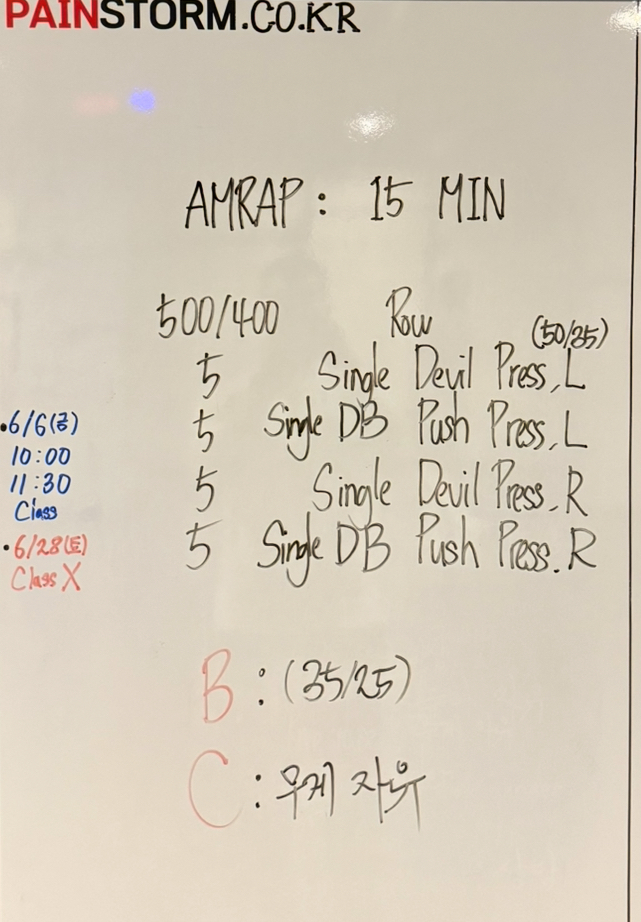 PAINSTORM.CO.KR
AMRAP: 15 MIN
500/400 Row
(50/35)
5 Single Devil Press, L
5 Single DB Push Press, L
5 Single Devil Press, R
5 Single DB Push Press. R
•6/6(금)
10:00
11:30
Class
•6/28(토)
Class X
B: (35/25)
C: 무게 자유